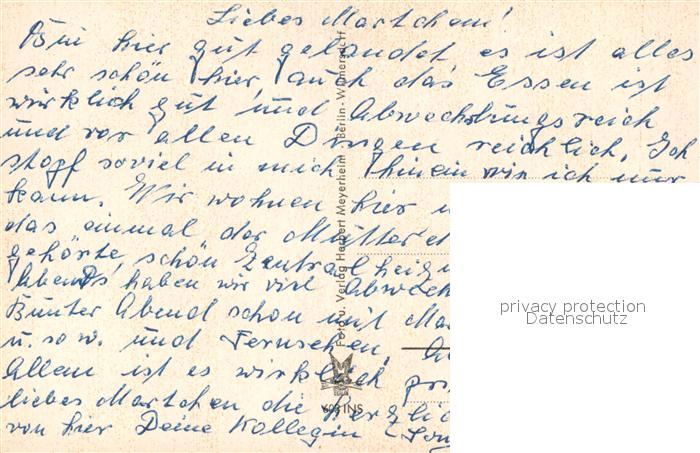 Liebes Martchen!
Bin hier gut gelandet es ist alles
sehr schön hier, auch das Essen ist
wirklich gut und Abwechslungsreich
und vor allen Dingen reichlich. Ich
stopf soviel in mich hinein wie ich nur
kann. Wir wohnen hier
das einmal der Mütter
gehörte, schön Zentralheizu
Abends haben wir viel Abwech
Bunter Abend schon mit
u.s.w. und Fernsehen.
Allem ist es wirklich
liebes Martchen die herzlic
von hier Deine Kollegin
Foto u. Verlag Herbert Meyerheim Berlin-Wilmersdorf
privacy protection
Datenschutz